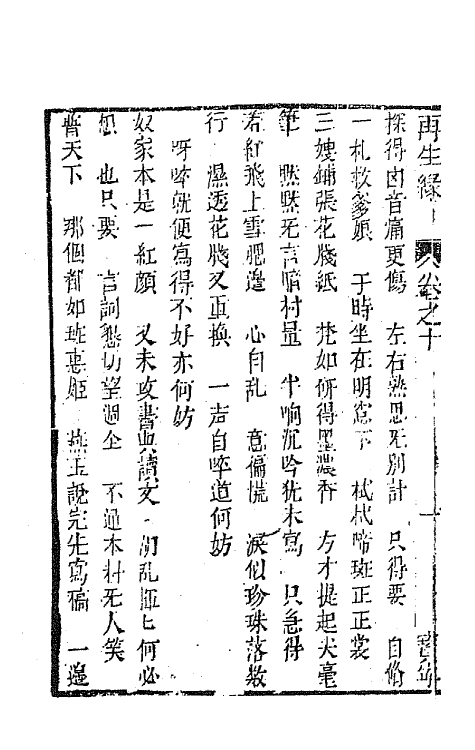 再生緣 卷之十
探得凶音痛更傷 左右熟思无別計 只得要 自修
一札救爹娘 于時坐在明窓下 拭拭啼斑正正裳
三嫂鋪張花牋紙 梵如研得墨濃香 方才提起尖毫
筆 默默无言暗村量 半晌沉吟犹未寫 只急得
若紅飛上雪腮邉 心自乱 意偏慌 淚似珍珠落数
行 濕透花牋又重換 一声自啐道何妨
呀啐就便寫得不好亦何妨
奴家本是一紅顔 又未攻書與讀文 胡乱 何必
想 也只要 言詞懇切望過全 不過本料无人笑
普天下 那個都如班惠姬 燕玉說完先寫稿 一邉